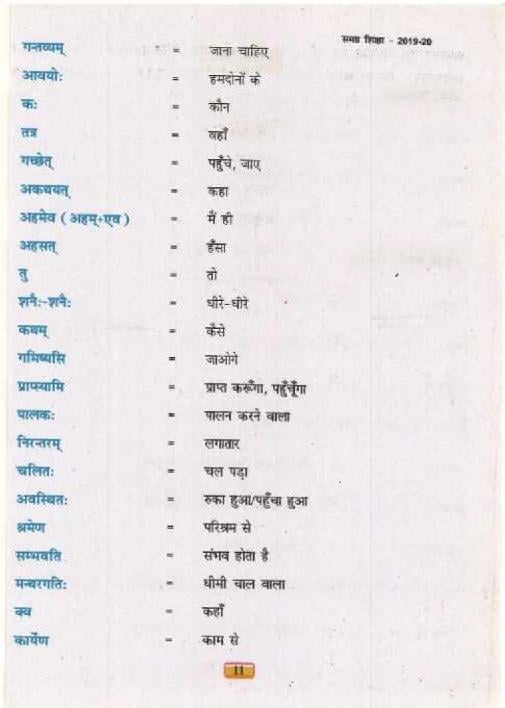 समग्र शिक्षा - 2019-20
गन्तव्यम् = जाना चाहिए
आवयोः = हमदोनों के
कः = कौन
तत्र = वहाँ
गच्छेत् = पहुँचे, जाए
अकथयत् = कहा
अहमेव ( अहम्+एव ) = मैं ही
अहसत् = हँसा
तु = तो
शनैः-शनैः = धीरे-धीरे
कथम् = कैसे
गमिष्यसि = जाओगे
प्राप्स्यामि = प्राप्त करूँगा, पहुँचूँगा
पालकः = पालन करने वाला
निरन्तरम् = लगातार
चलितः = चल पड़ा
अवस्थितः = रुका हुआ/पहुँचा हुआ
श्रमेण = परिश्रम से
सम्भवति = संभव होता है
मन्थरगतिः = धीमी चाल वाला
क्व = कहाँ
कार्येण = काम से
11